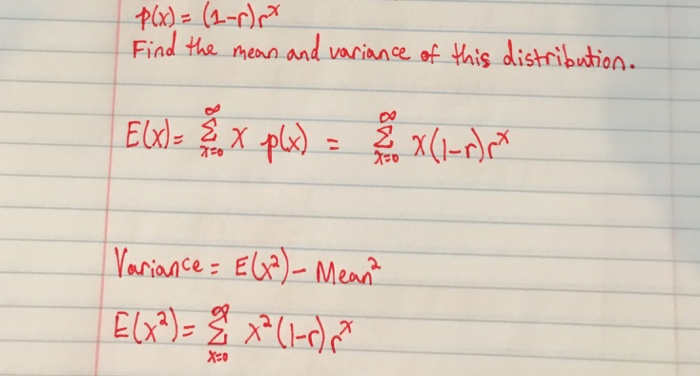 p(x) = (1-r)r^x
Find the mean and variance of this distribution.
E(x) = ∑_{x=0}^{∞} x p(x) = ∑_{x=0}^{∞} x(1-r)r^x
Variance = E(x²) - Mean²
E(x²) = ∑_{x=0}^{∞} x²(1-r)r^x